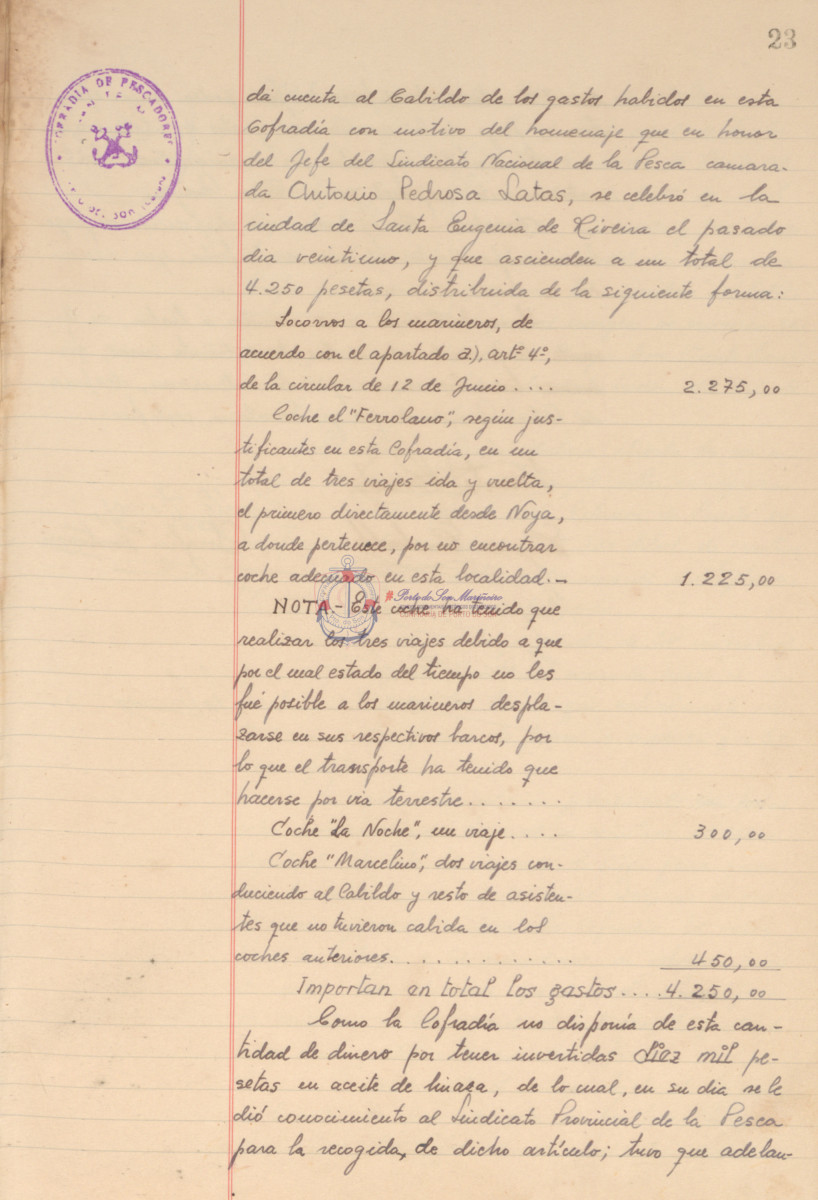 23
COFRADIA DE PESCADORES
da cuenta al Cabildo de los gastos habidos en esta
Cofradía con motivo del homenaje que en honor
del Jefe del Sindicato Nacional de la Pesca camara-
da Antonio Pedrosa Latas, se celebró en la
ciudad de Santa Eugenia de Riveira el pasado
dia veintiuno, y que ascienden a un total de
4.250 pesetas, distribuida de la siguiente forma:
Socorros a los marineros, de
acuerdo con el apartado a), artº 4º,
de la circular de 12 de Junio .... 2.275,00
Coche el "Ferrolano", según jus-
tificantes en esta Cofradía, en un
total de tres viajes ida y vuelta,
el primero directamente desde Noya,
a donde pertenece, por no encontrar
coche adecuado en esta localidad.- 1.225,00
NOTA.- Este coche ha tenido que
realizar los tres viajes debido a que
por el mal estado del tiempo no les
fué posible a los marineros despla-
zarse en sus respectivos barcos, por
lo que el transporte ha tenido que
hacerse por via terrestre........
Coche "La Noche", un viaje.... 300,00
Coche "Marcelino", dos viajes con-
duciendo al Cabildo y resto de asisten-
tes que no tuvieron cabida en los
coches anteriores............. 450,00
Importan en total los gastos.... 4.250,00
Como la Cofradía no disponía de esta can-
tidad de dinero por tener invertidas diez mil pe-
setas en aceite de linaza, de lo cual, en su dia se le
dió conocimiento al Sindicato Provincial de la Pesca
para la recogida, de dicho artículo; tuvo que adelan-
Porto do Son Mariñeiro